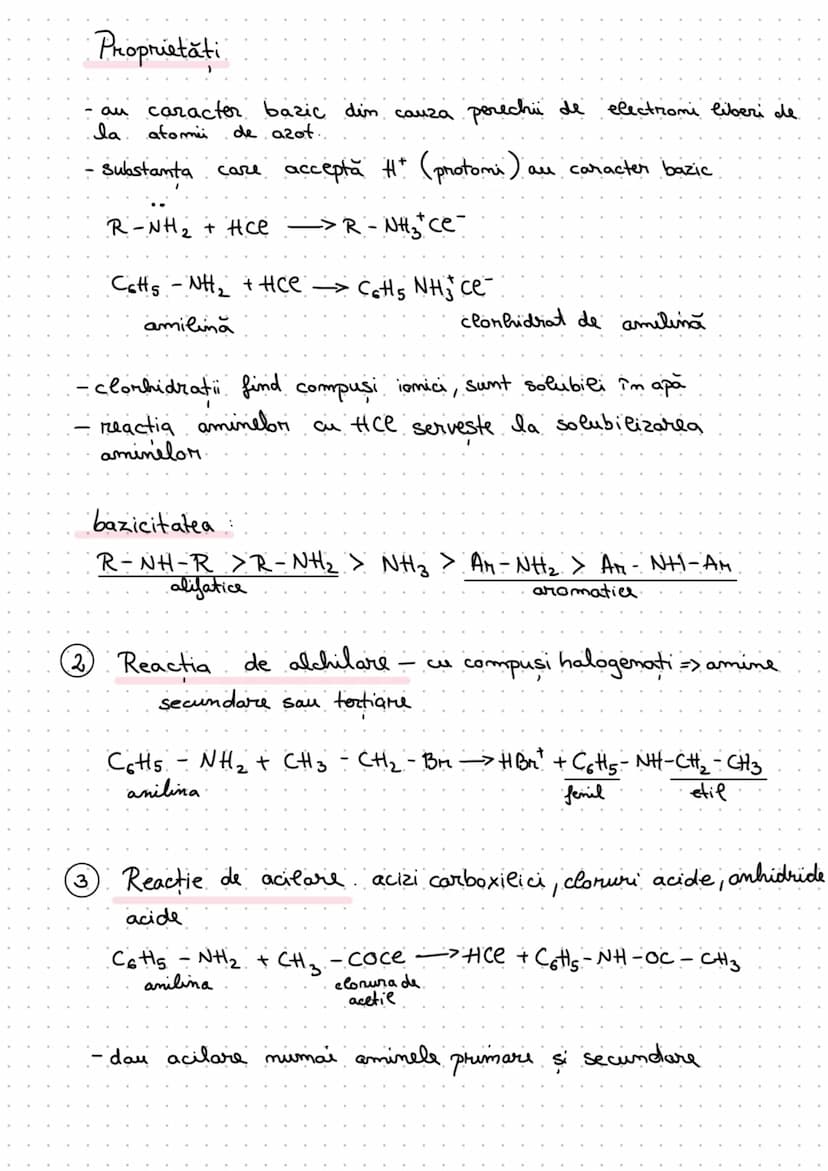 Proprietăți
- au caracter bazic din cauza perechii de electroni liberi de
la atomii de azot.
- substanța care acceptă H⁺ (protoni) au caracter bazic
R-N̈H₂ + HCl ⟶ R - NH₃⁺Cl⁻
C₆H₅ - NH₂ + HCl ⟶ C₆H₅ NH₃⁺ Cl⁻
anilină clorhidrat de anilină
- clorhidrații fiind compuși ionici, sunt solubili în apă
- reacția aminelor cu HCl servește la solubilizarea
aminelor
bazicitatea :
R-NH-R > R-NH₂ > NH₃ > Ar-NH₂ > Ar - NH-Ar
alifatice aromatice
② Reacția de alchilare - cu compuși halogenați => amine
secundare sau terțiare
C₆H₅ - NH₂ + CH₃ - CH₂ - Br ⟶ HBr⁺ + C₆H₅ - NH-CH₂ - CH₃
anilina fenil etil
③ Reacție de acilare. acizi carboxilici, cloruri acide, anhidride
acide
C₆H₅ - NH₂ + CH₃ - COCl ⟶ HCl + C₆H₅ - NH - OC - CH₃
anilina clorura de
acetil
- dau acilare numai aminele primare și secundare